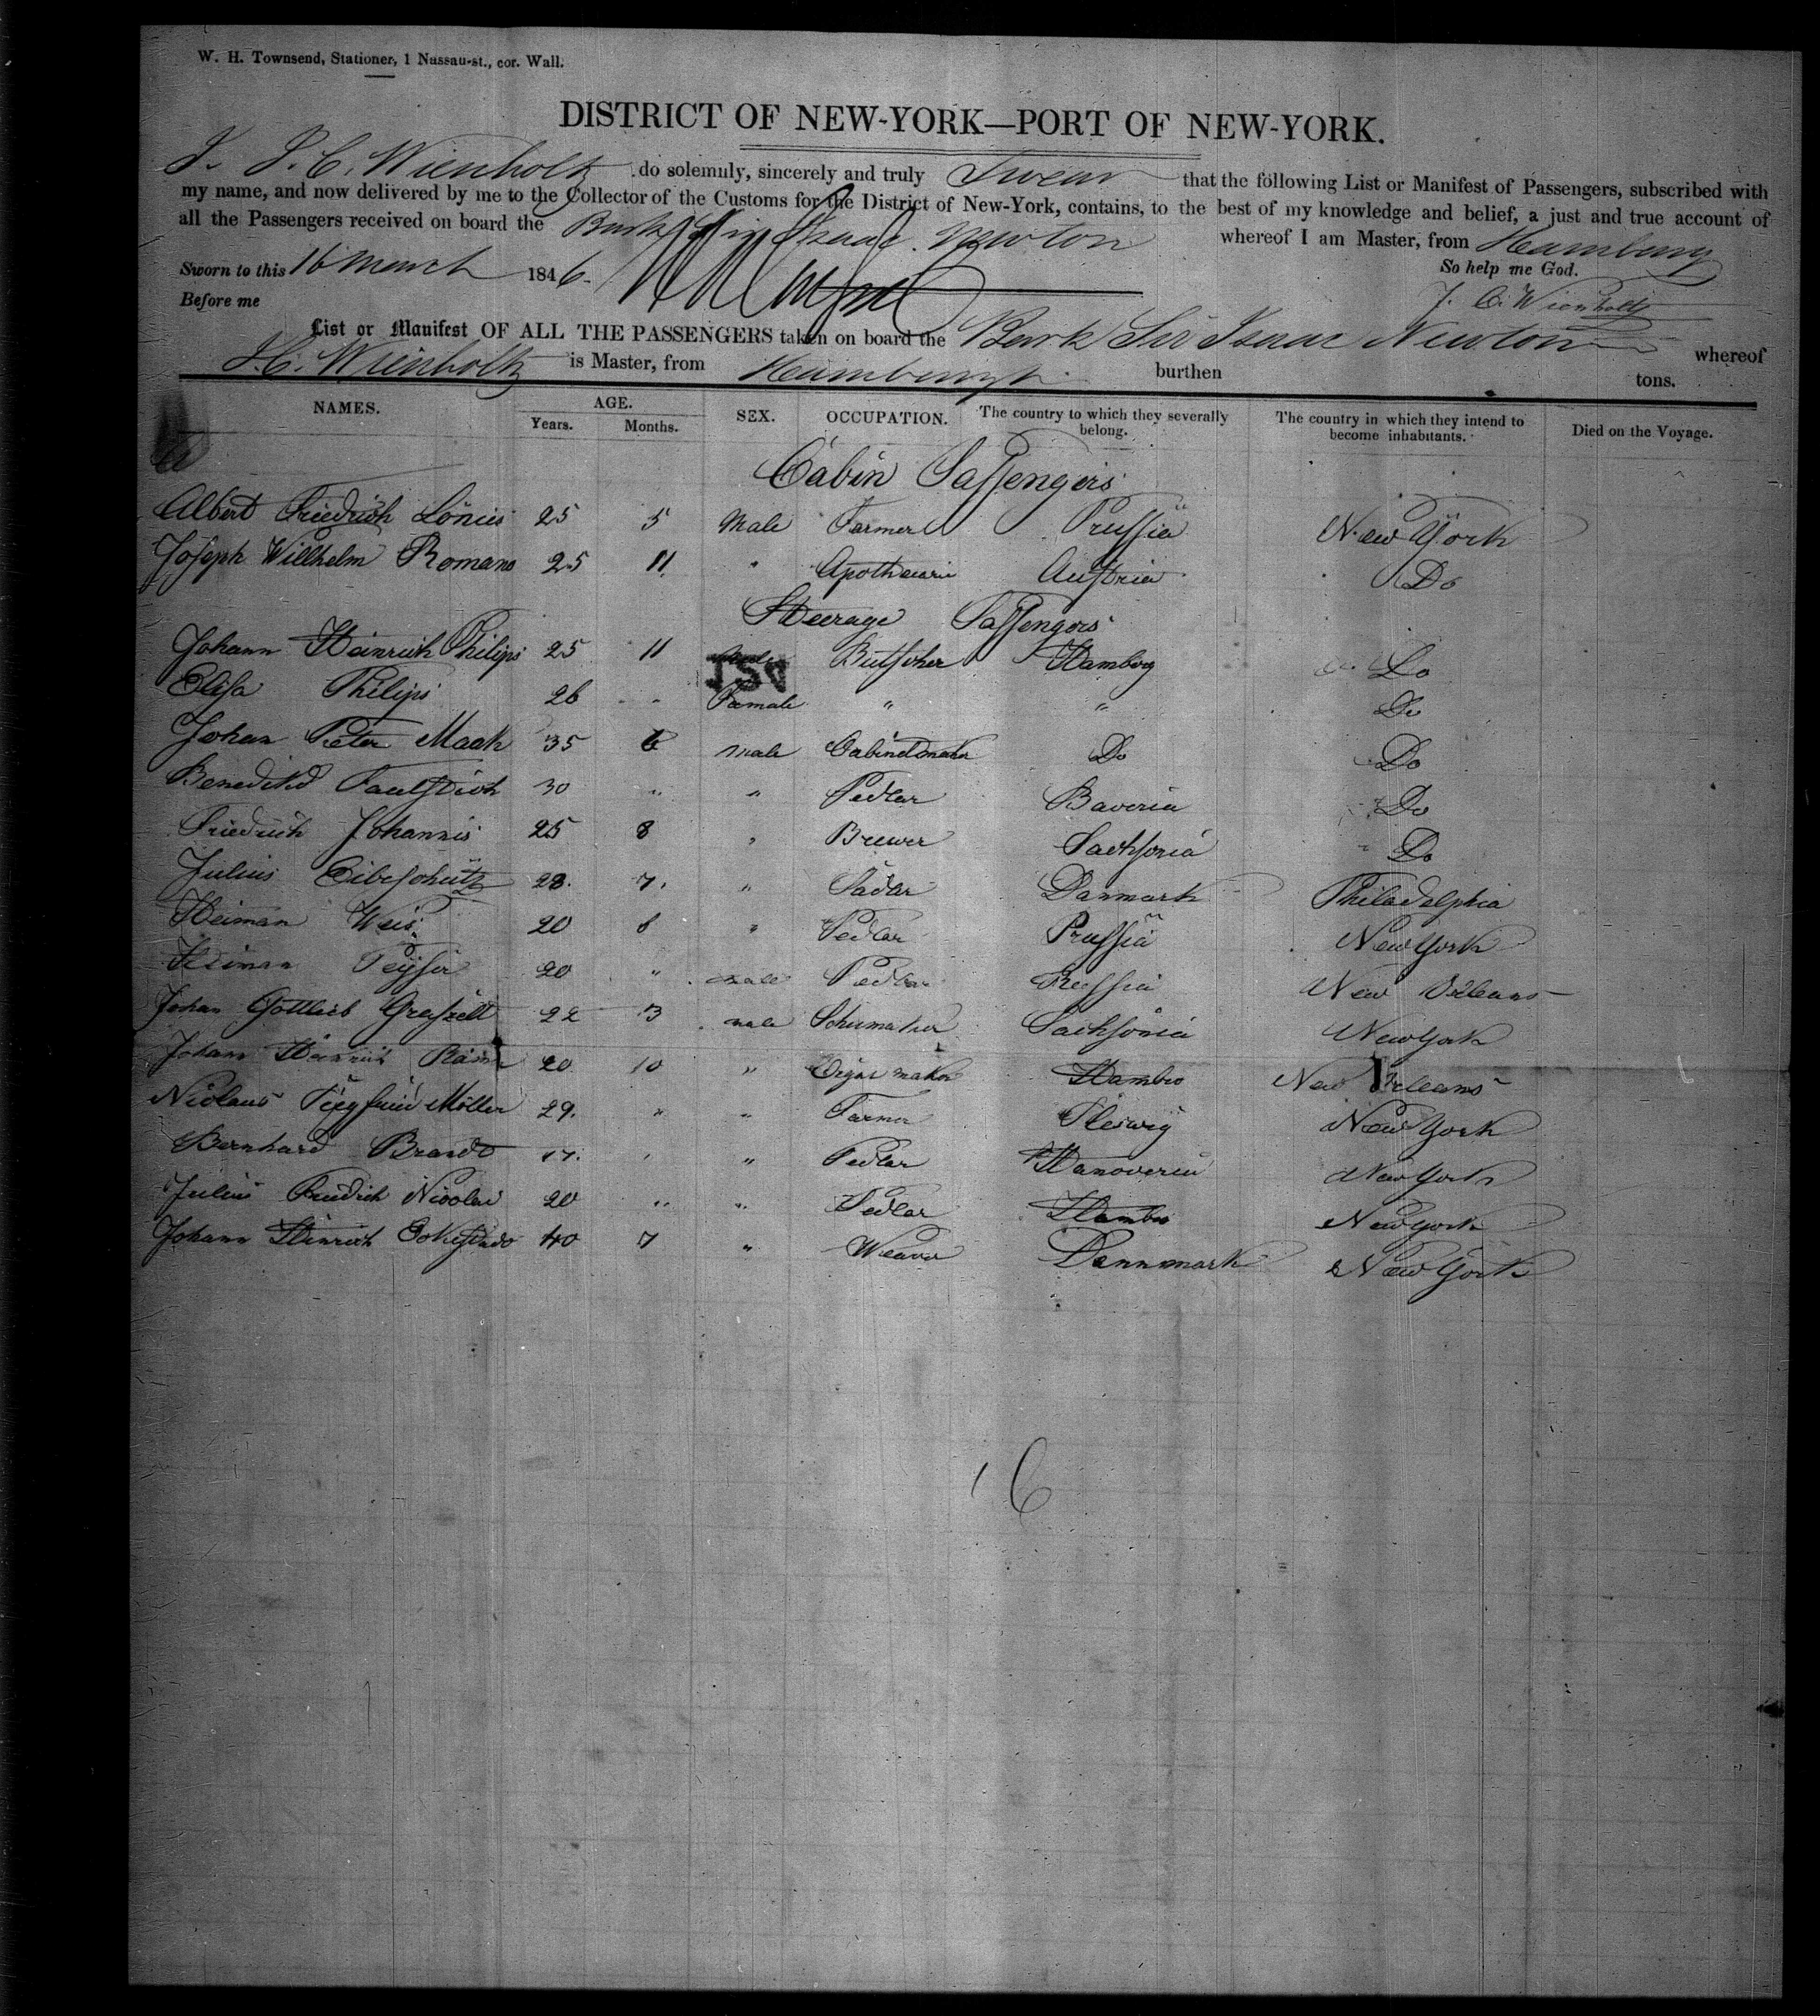 W. H. Townsend, Stationer, 1 Nassau-st., cor. Wall.
DISTRICT OF NEW-YORK—PORT OF NEW-YORK.
I. J. C. Wienholtz do solemnly, sincerely and truly Swear that the following List or Manifest of Passengers, subscribed with
my name, and now delivered by me to the Collector of the Customs for the District of New-York, contains, to the best of my knowledge and belief, a just and true account of
all the Passengers received on board the Bark Sir Isaac Newton whereof I am Master, from Hamburg
Sworn to this 16 March 1846. So help me God.
Before me J. C. Wienholtz
List or Manifest OF ALL THE PASSENGERS taken on board the Bark Sir Isaac Newton whereof
J. C. Wienholtz is Master, from Hamburgh burthen tons.
NAMES. AGE. Years. Months. SEX. OCCUPATION. The country to which they severally belong. The country in which they intend to become inhabitants. Died on the Voyage.
Cabin Passengers
Albert Friedrich Lönies 25 5 Male Farmer Prussia New York
Joseph Willhelm Romano 25 11 " Apothecarie Austria Do
Steerage Passengers
Johann Heinrich Philips 25 11 Male Butscher Hamborg Do
Elisa Philips 26 " Female " " Do
Johan Peter Maak 35 6 Male Cabinetmaker Do Do
Benedikd Faulstich 30 " " Pedlar Baveria Do
Friedrich Johannis 25 8 " Brewer Sachsonia Do
Julius Eibeschütz 28. 7. " Sadlar Danmark Philadelphia
Heiman Weis 20 6 " Pedlar Prussia New York
Heiman Peyser 20 " male Pedlar Russia New Orleans
Johan Gottlieb 22 3 male Schumaker Sachsonia New York
Johann Heinrich 20 10 " Cigar maker Hambro New Orleans
Nicolaus Siegfried Möller 29. " " Farmer Sleswig New York
Bernhard Brandt 17. " " Pedlar Hanoveria New York
Julius Friedrich Nicolai 20 " " Pedlar Hambro New York
Johann Hinrich 40 7 " Weaver Dannmark New York
16